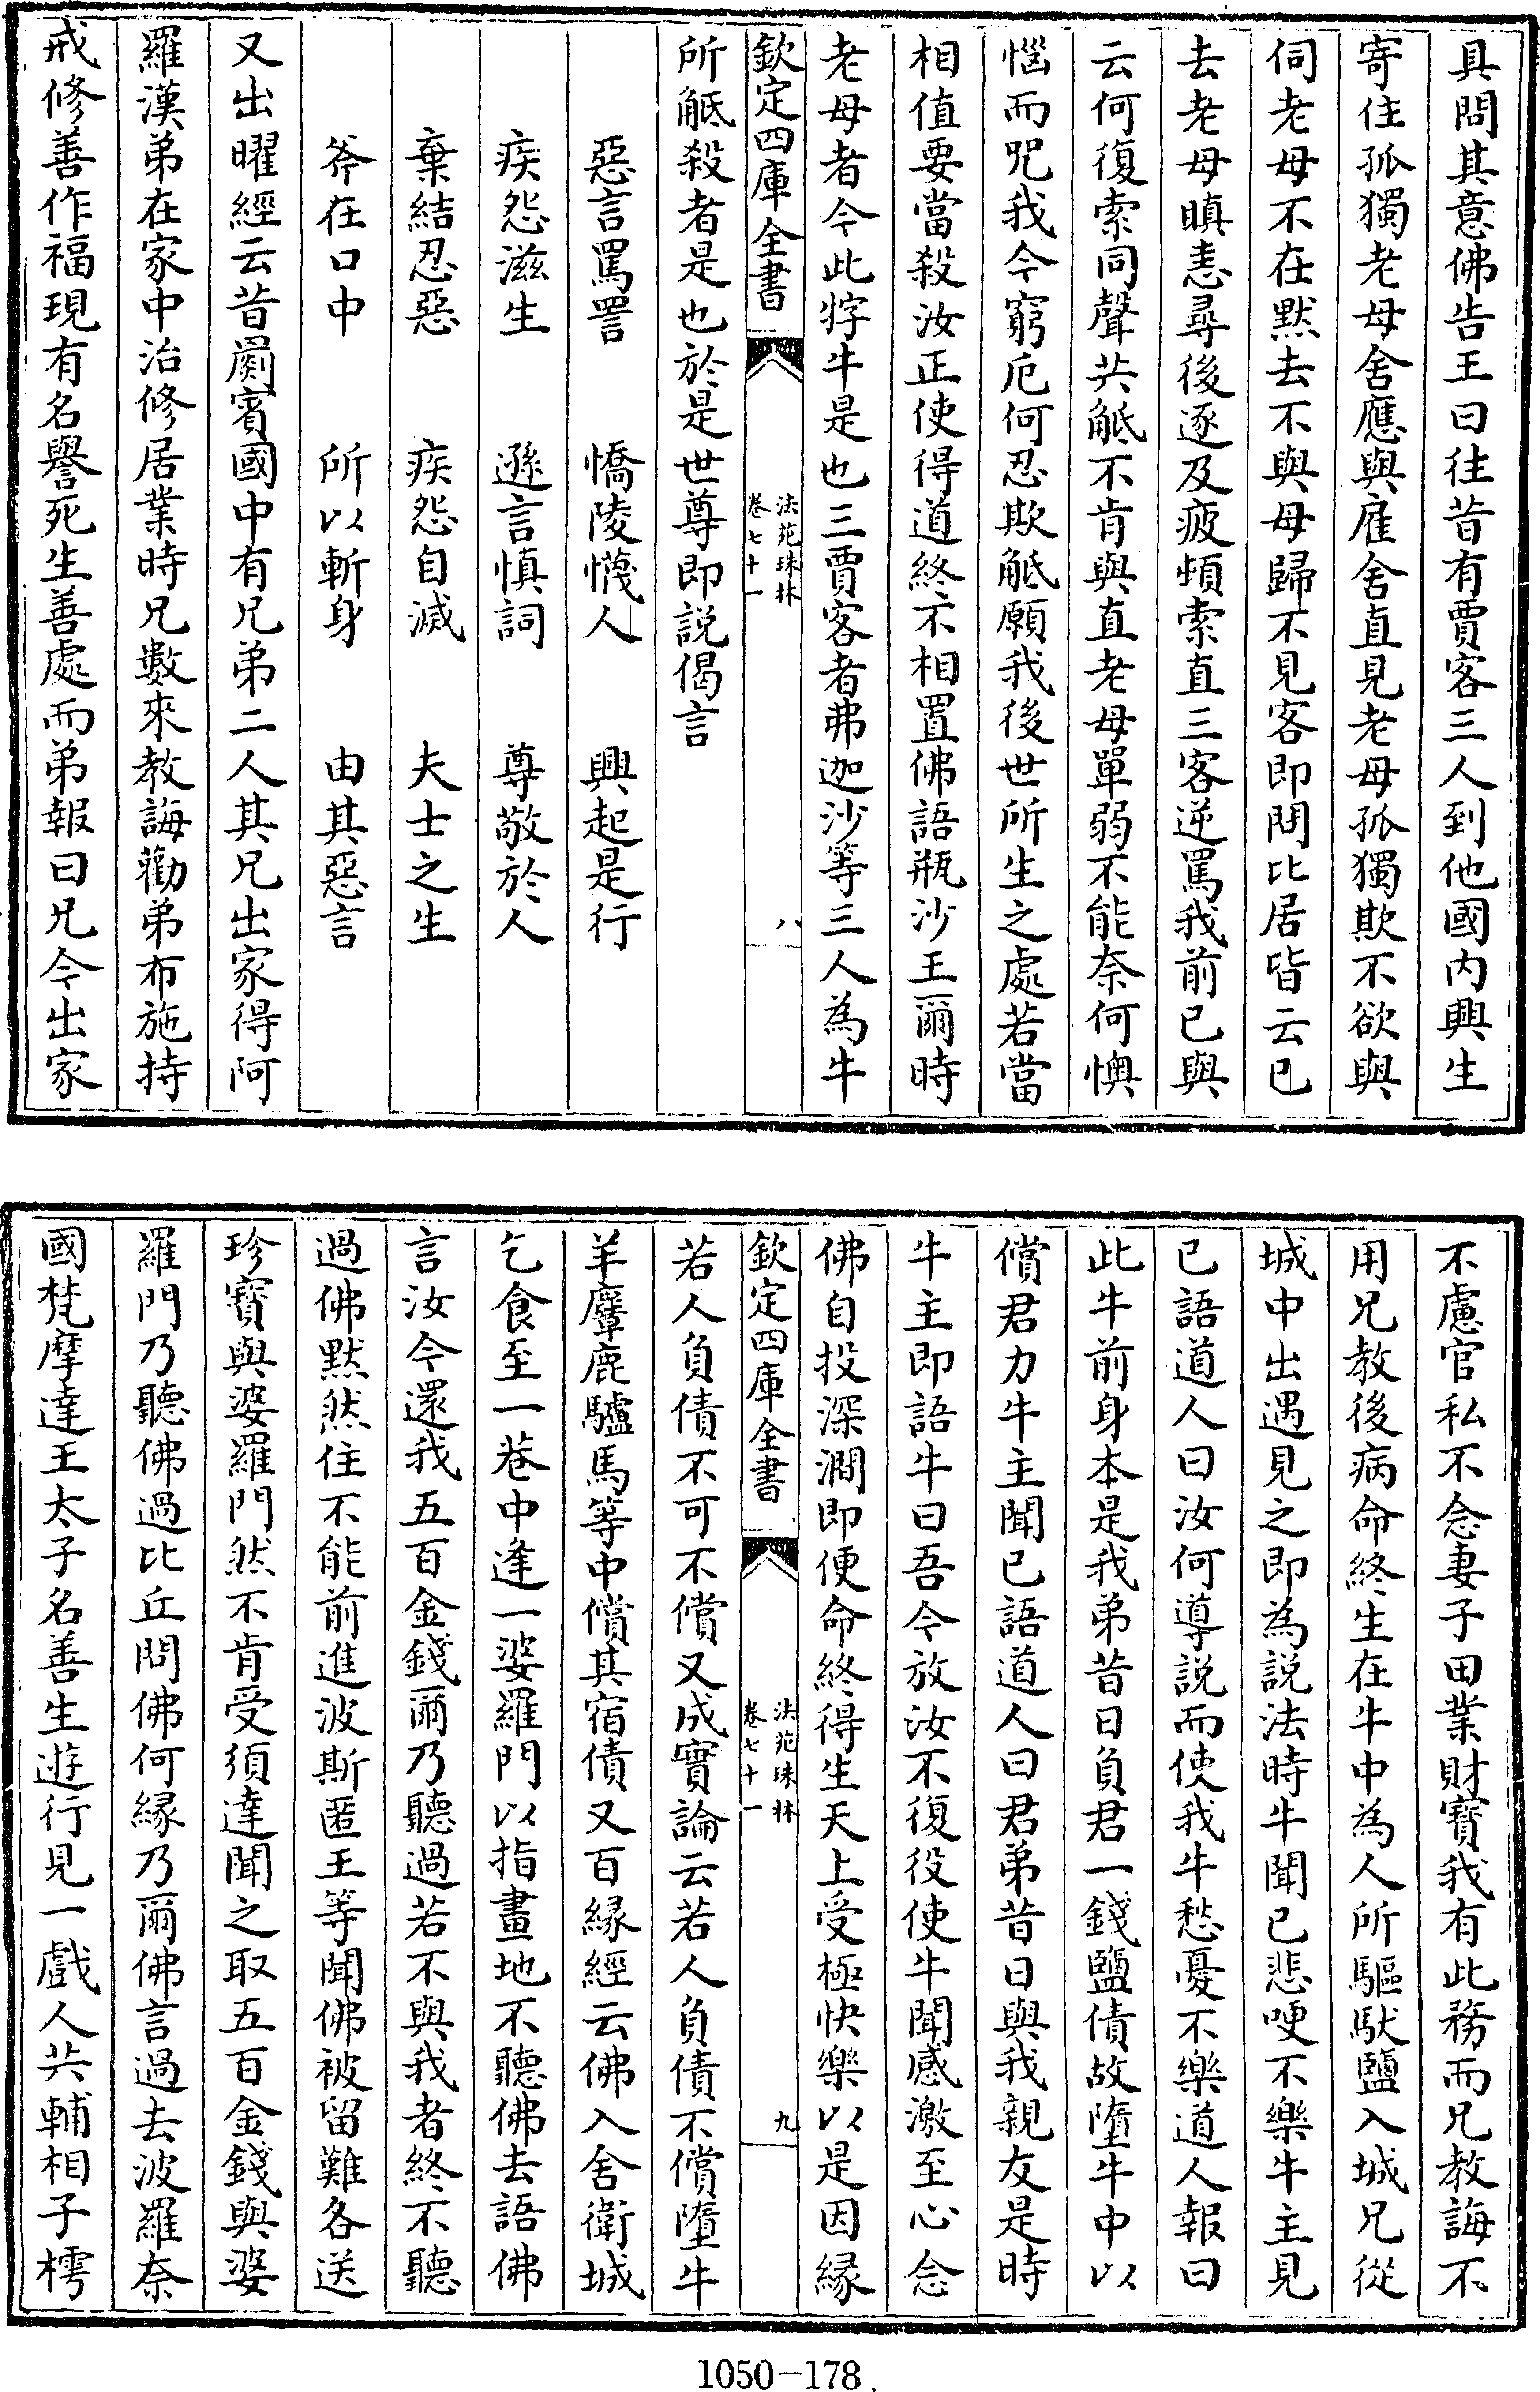 具問其意佛告王曰往昔有賈客三人到他國內興生
寄住孤獨老母舍應與雇舍直見老母孤獨欺不欲與
伺老母不在默去不與母歸不見客即問比居皆云已
去老母瞋恚尋後逐及疲頓索直三客逆罵我前已與
云何復索同聲共觝不肯與直老母單弱不能奈何懊
惱而咒我今窮厄何忍欺觝願我後世所生之處若當
相值要當殺汝正使得道終不相置佛語瓶沙王爾時
老母者今此牸牛是也三賈客者弗迦沙等三人為牛
欽定四庫全書
法苑珠林
卷七十一
八
所觝殺者是也於是世尊即說偈言
惡言罵詈 憍陵懱人 興起是行
疾怨滋生 遜言慎詞 尊敬於人
棄結忍惡 疾怨自滅 夫士之生
斧在口中 所以斬身 由其惡言
又出曜經云昔罽賓國中有兄弟二人其兄出家得阿
羅漢弟在家中治修居業時兄數來教誨勸弟布施持
戒修善作福現有名譽死生善處而弟報曰兄今出家
不慮官私不念妻子田業財寶我有此務而兄教誨不
用兄教後病命終生在牛中為人所驅馱鹽入城兄從
城中出遇見之即為說法時牛聞已悲哽不樂牛主見
已語道人曰汝何導說而使我牛愁憂不樂道人報曰
此牛前身本是我弟昔日負君一錢鹽債故墮牛中以
償君力牛主聞已語道人曰君弟昔日與我親友是時
牛主即語牛曰吾今放汝不復役使牛聞感激至心念
佛自投深澗即便命終得生天上受極快樂以是因緣
欽定四庫全書
法苑珠林
卷七十一
九
若人負債不可不償又成實論云若人負債不償墮牛
羊麞鹿驢馬等中償其宿債又百緣經云佛入舍衛城
乞食至一巷中逢一婆羅門以指畫地不聽佛去語佛
言汝今還我五百金錢爾乃聽過若不與我者終不聽
過佛默然住不能前進波斯匿王等聞佛被留難各送
珍寶與婆羅門然不肯受須達聞之取五百金錢與婆
羅門乃聽佛過比丘問佛何緣乃爾佛言過去波羅奈
國梵摩達王太子名善生遊行見一戲人共輔相子樗
1050-178